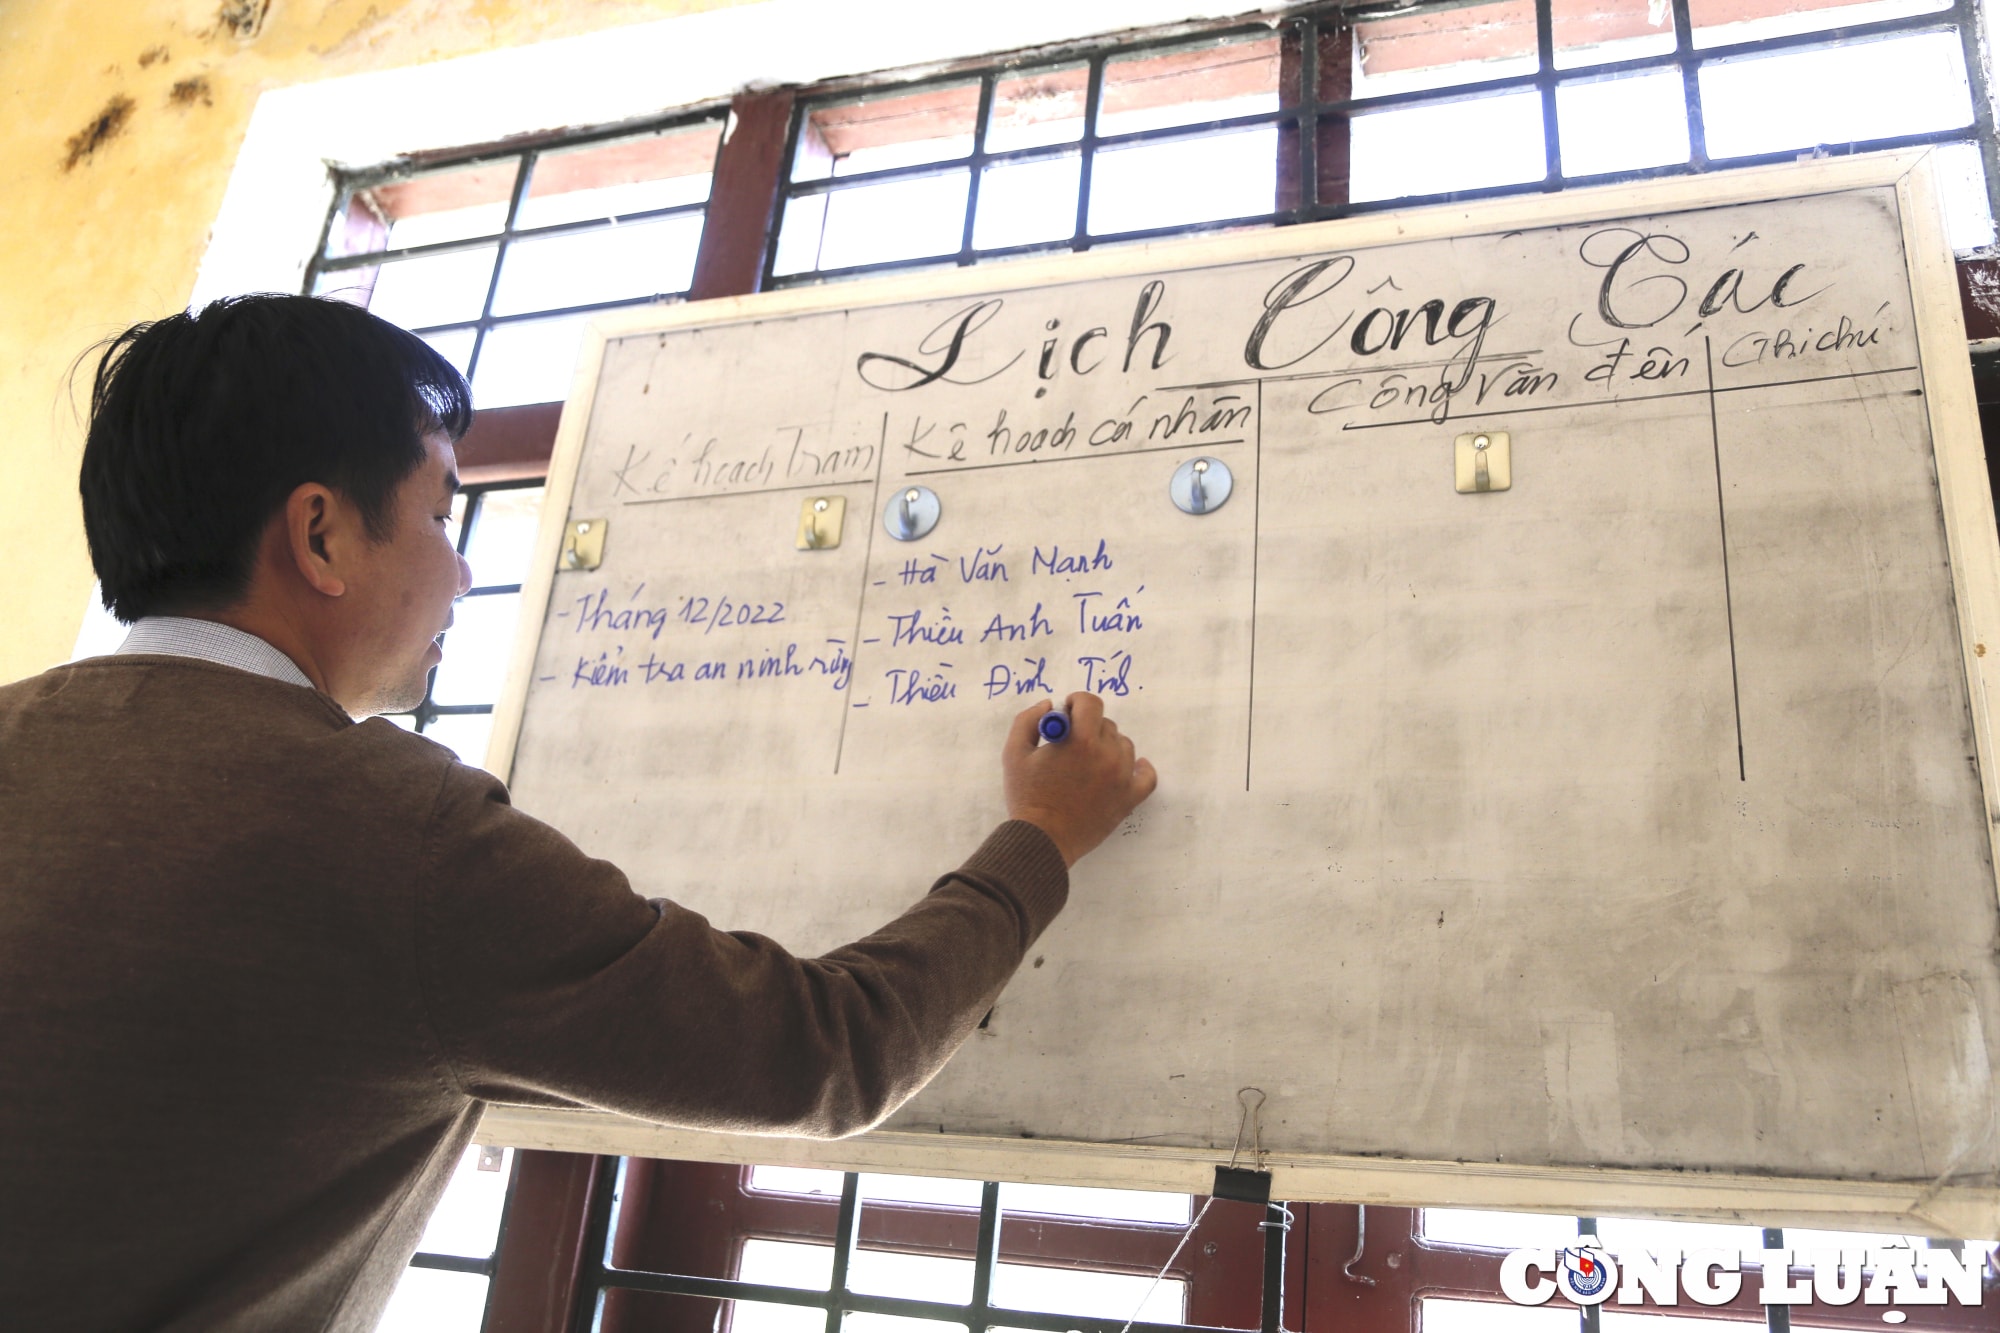 Lịch Công Tác
Kế hoạch Trạm
Kê hoạch cá nhân
Công Văn đến
Ghi chú
- Tháng 12/2022
- Kiểm tra an ninh rừng
- Hà Văn Mạnh
- Thiều Anh Tuấn
- Thiều Đình Tính.
CÔNG LUẬN